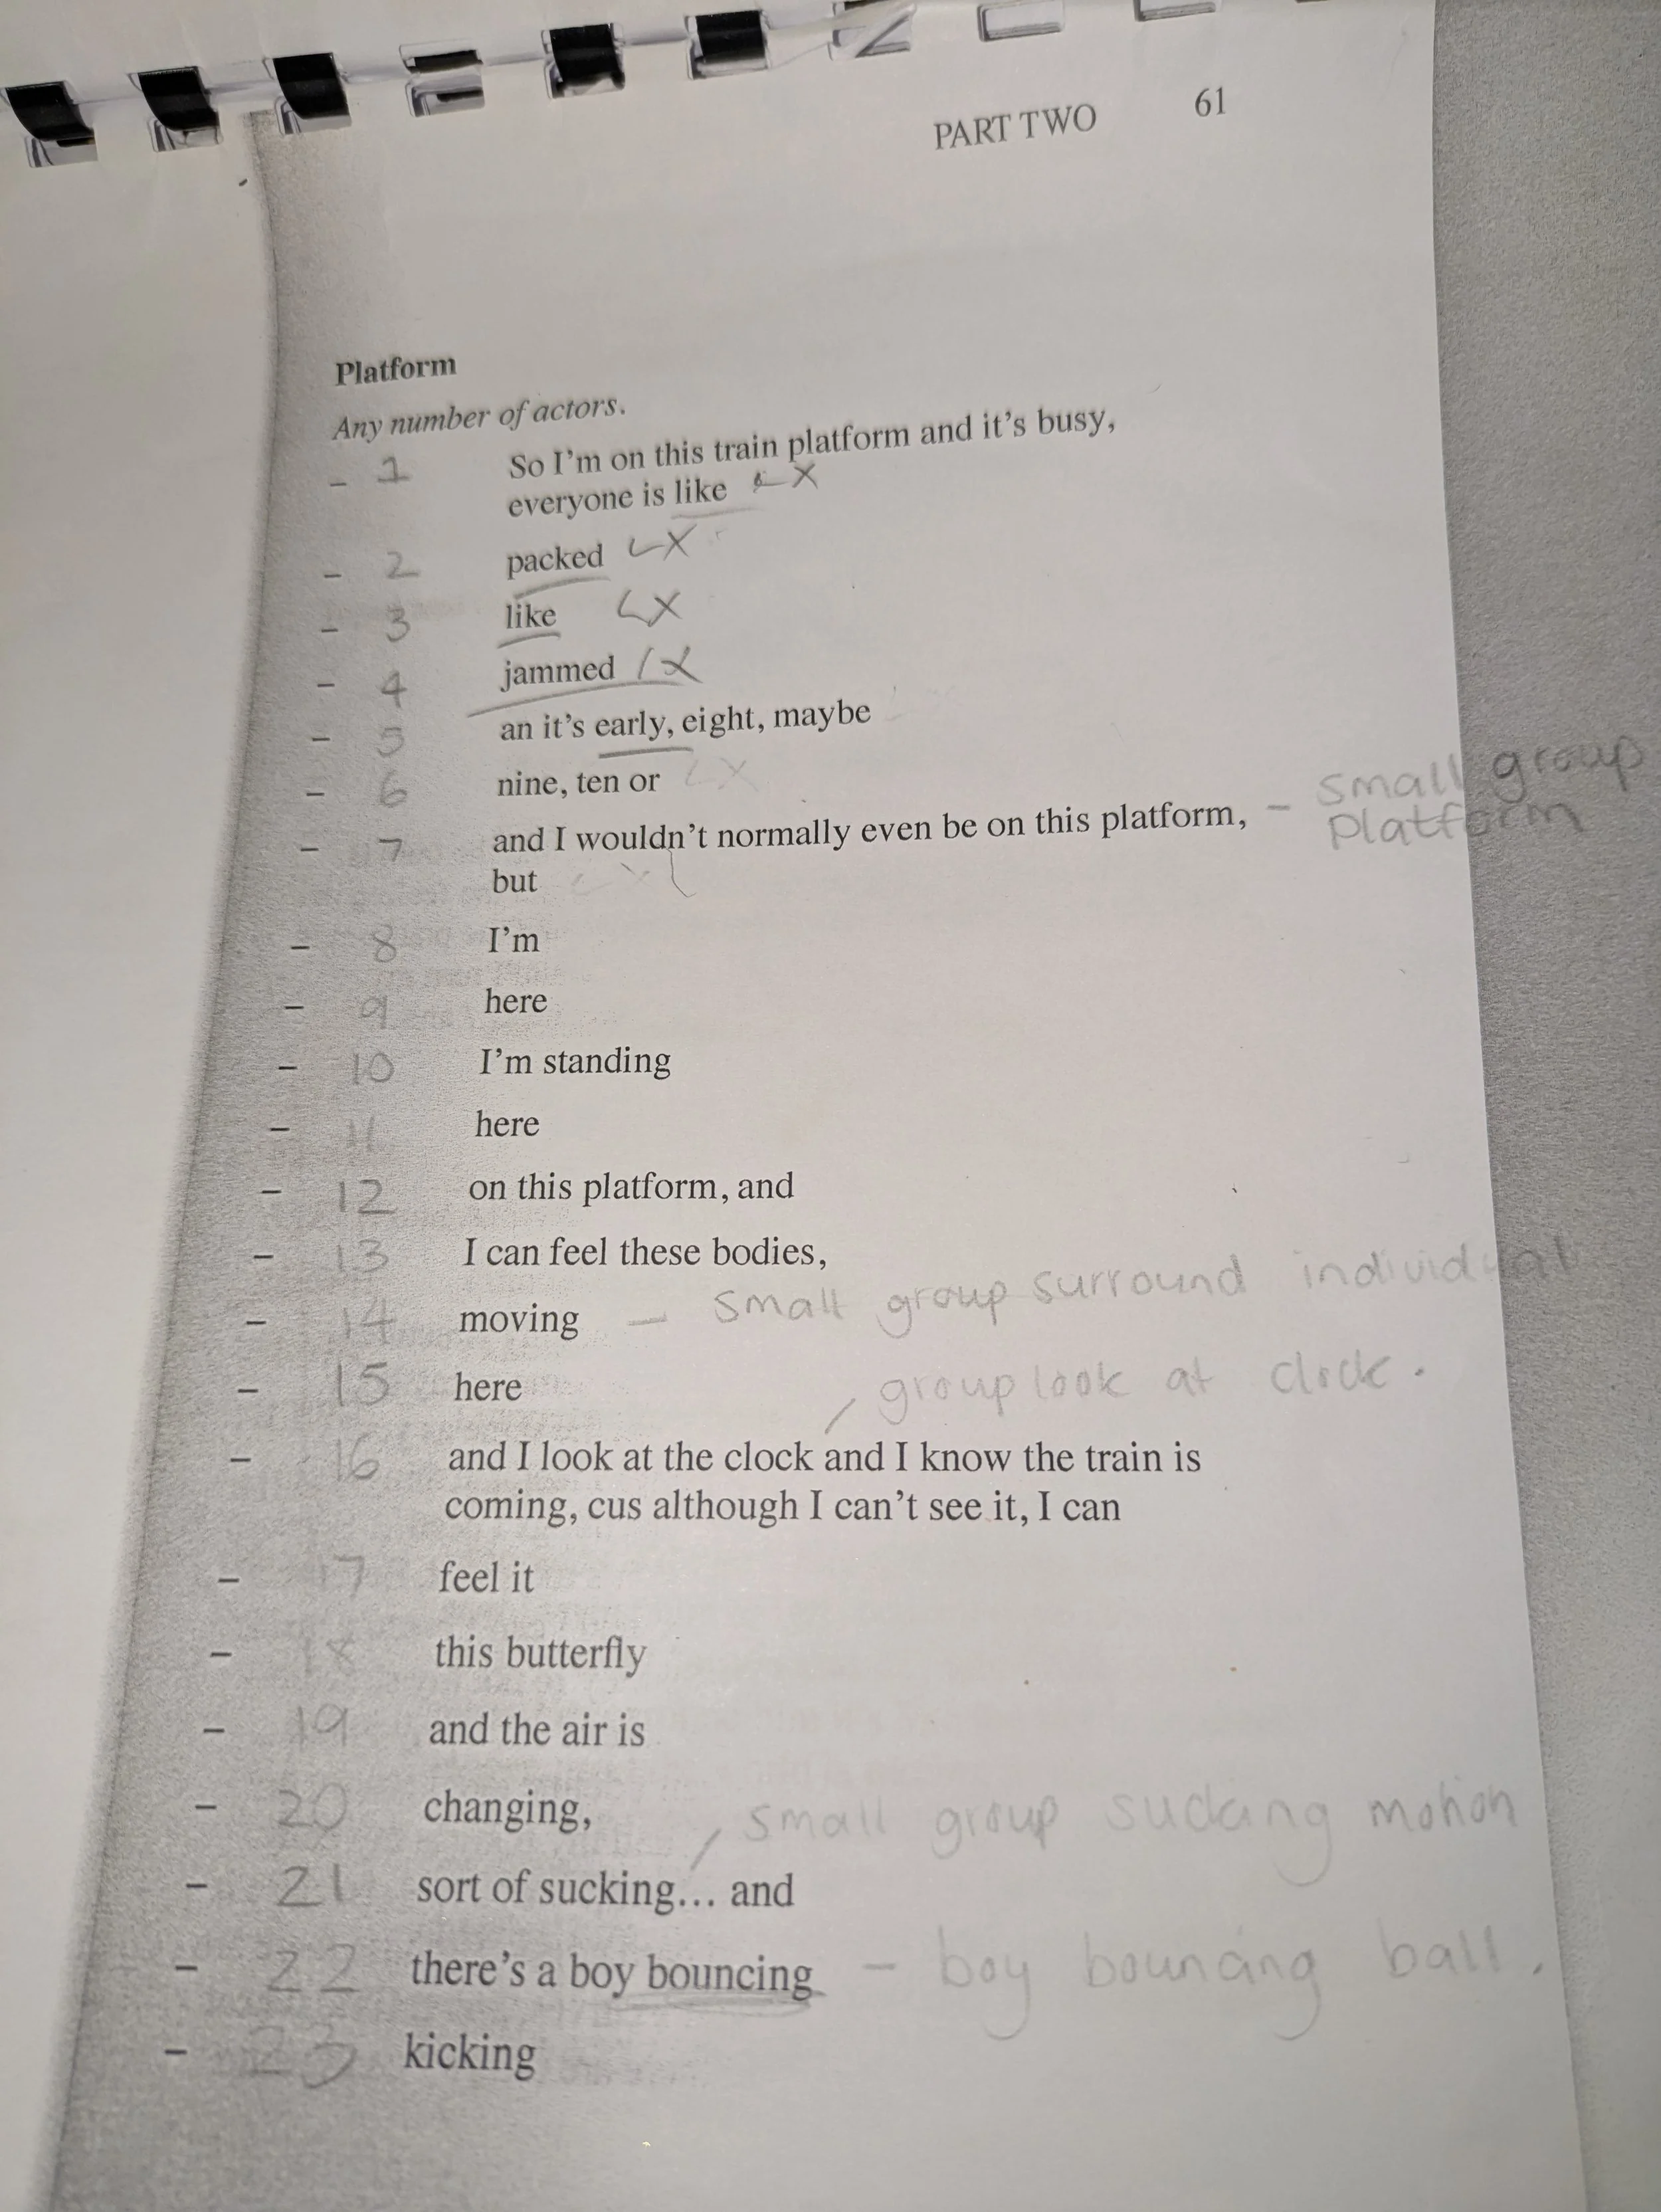 PART TWO 61
Platform
Any number of actors.
- 1 So I'm on this train platform and it's busy,
everyone is like X
- 2 packed X
- 3 like X
- 4 jammed X
- 5 an it's early, eight, maybe
- 6 nine, ten or X
- 7 and I wouldn't normally even be on this platform, - small group
platform
but
- 8 I'm
- 9 here
- 10 I'm standing
- 11 here
- 12 on this platform, and
- 13 I can feel these bodies,
- 14 moving - small group surround individual
- 15 here
group look at clock.
- 16 and I look at the clock and I know the train is
coming, cus although I can't see it, I can
- 17 feel it
- 18 this butterfly
- 19 and the air is
- 20 changing,
small group sucking motion
- 21 sort of sucking... and
- 22 there's a boy bouncing - boy bouncing ball.
- 23 kicking